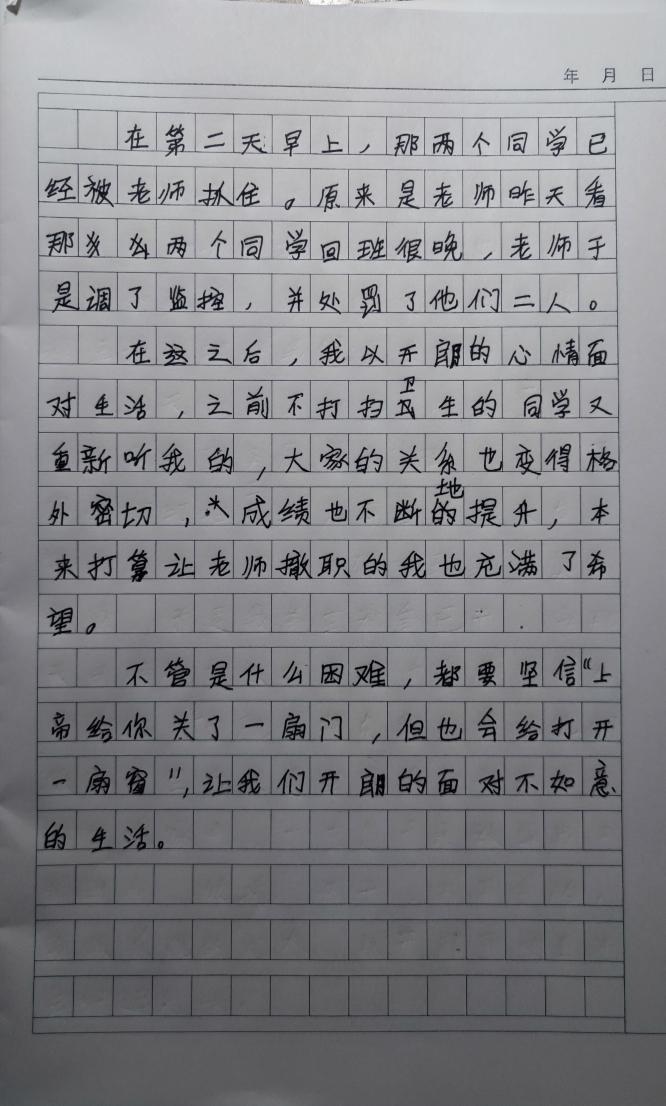 年 月 日
在第二天早上，那两个同学已
经被老师抓住。原来是老师昨天看
那两个同学回班很晚，老师于
是调了监控，并处罚了他们二人。
在这之后，我以开朗的心情面
对生活，之前不打扫卫生的同学又
重新听我的，大家的关系也变得格
外密切，成绩也不断地提升，本
来打算让老师撤职的我也充满了希
望。
不管是什么困难，都要坚信“上
帝给你关了一扇门，但也会给打开
一扇窗”，让我们开朗的面对不如意
的生活。